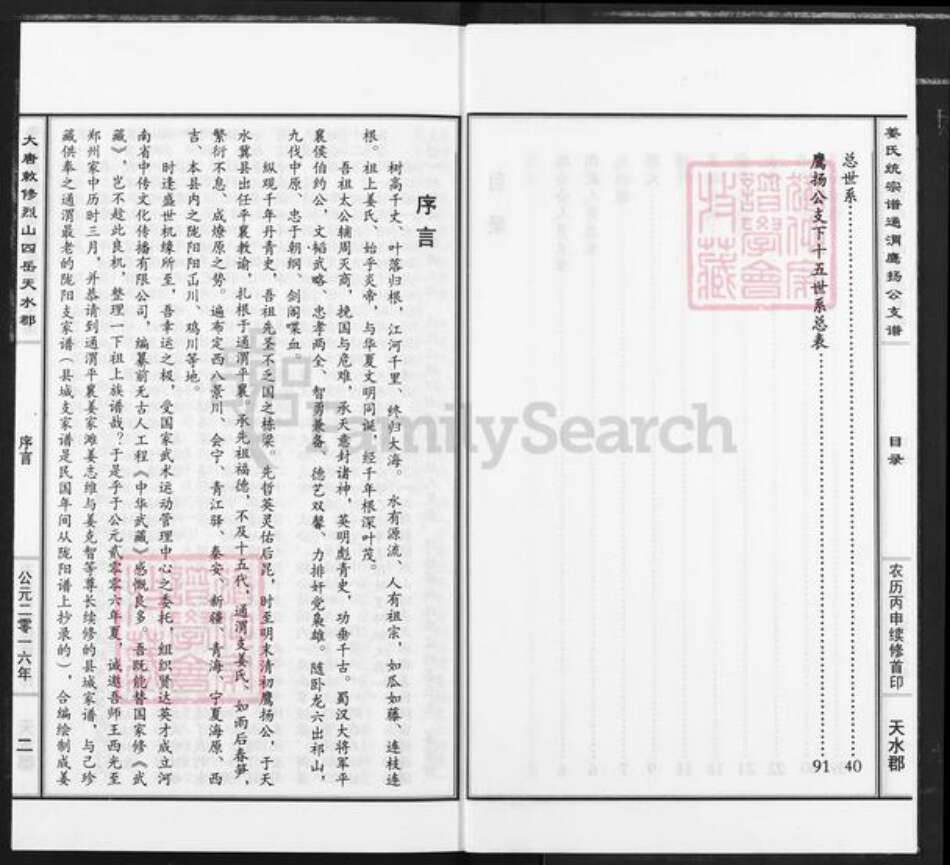 姜氏统宗谱通渭鹰扬公支谱
目录
农历丙申续修首印
天水郡
总世系 40
鹰扬公支下十五世系总表 91
序言
树高千丈、叶落归根,江河千里、终归大海。水有源流、人有祖宗,如瓜如藤、连枝连
根。祖上姜氏、始乎炎帝,与华夏文明同诞,经千年根深叶茂。
吾祖太公辅周灭商,挽国与危难,承天意封诸神,英明彪青史,功垂千古。蜀汉大将军平
襄侯伯约公,文韬武略、忠孝两全、智勇兼备。德艺双馨、力排奸党枭雄。随卧龙六出祁山,
九伐中原、忠于朝纲、剑阁喋血。
纵观千年丹青史,吾祖先圣不乏国之栋梁。先哲英灵佑后昆,时至明末清初鹰扬公,于天
水冀县出任平襄教谕,扎根于通渭平襄、承先祖福德,不及十五代,通渭支姜氏、如雨后春笋,
繁衍不息、成燎原之势。遍布定西八景川、会宁、青江驿、秦安、新疆、青海、宁夏海原、西
吉、本县内之陇阳阳屲川、鸡川等地。
时逢盛世机缘所至,吾幸运之极,受国家武术运动管理中心之委托,组织贤达英才成立河
南省中传文化传播有限公司,编纂前无古人工程《中华武藏》感慨良多。吾既能替国家修《武
藏》,岂不趁此良机,整理一下祖上族谱哉?于是乎于公元贰零零六年夏,诚邀吾师王西先至
郑州家中历时三月,并恭请到通渭平襄姜家滩姜志维与姜克智等尊长续修的县城家谱,与己珍
藏供奉之通渭最老的陇阳支家谱(县城支家谱是民国年间从陇阳谱上抄录的),合编绘制成姜
大唐敕修烈山四岳天水郡
序言
公元二零一六年
二
FamilySearch